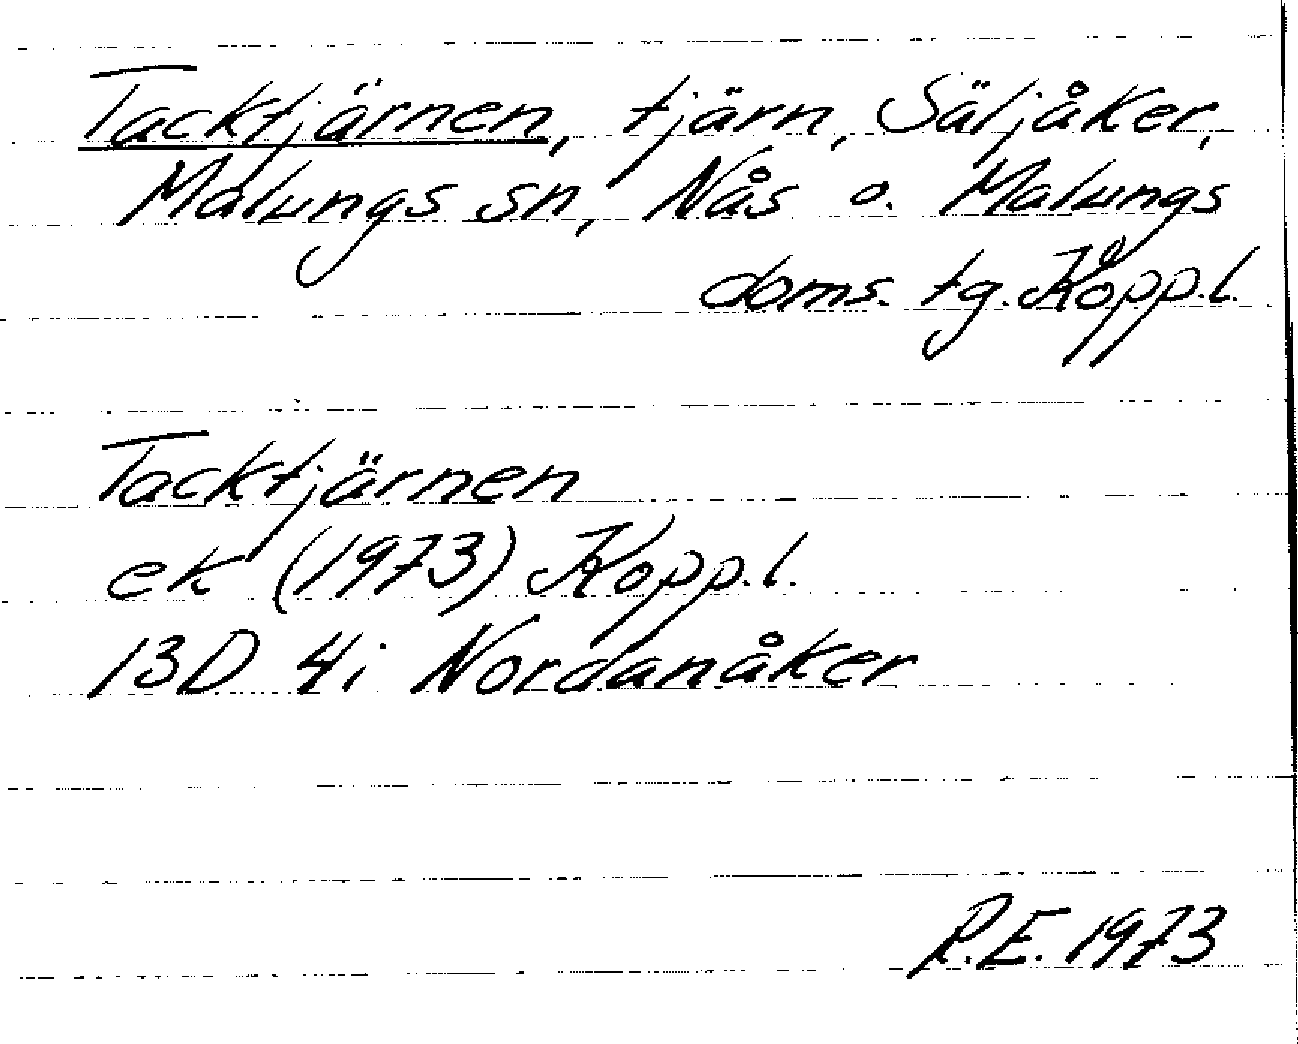 Tacktjärnen, tjärn, Säljåker,
Malungs sn, Nås o. Malungs
doms. tg. Kopp.l.
Tacktjärnen
ek (1973) Kopp.l.
13D 4i Nordanåker
R.E. 1973